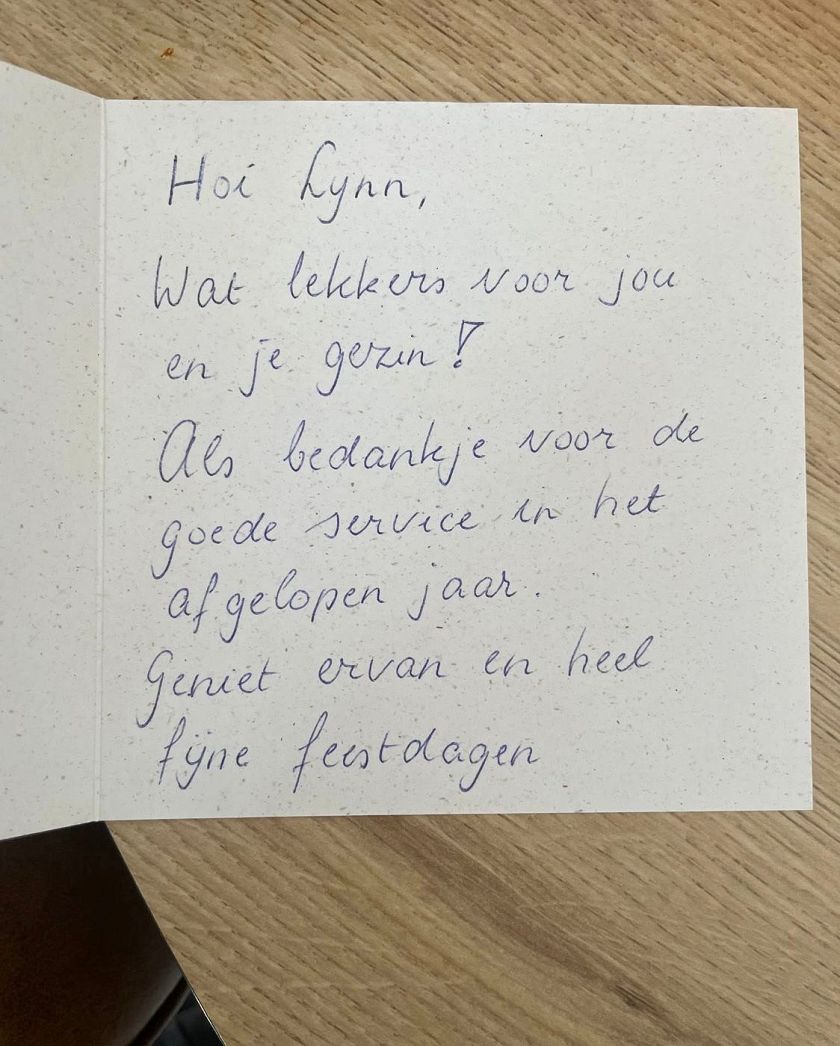 Hoi Lynn,
Wat lekkers voor jou
en je gezin!
Als bedankje voor de
goede service in het
afgelopen jaar.
Geniet ervan en heel
fijne feestdagen